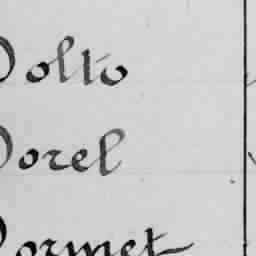 Dolto
Dorel
Dormet